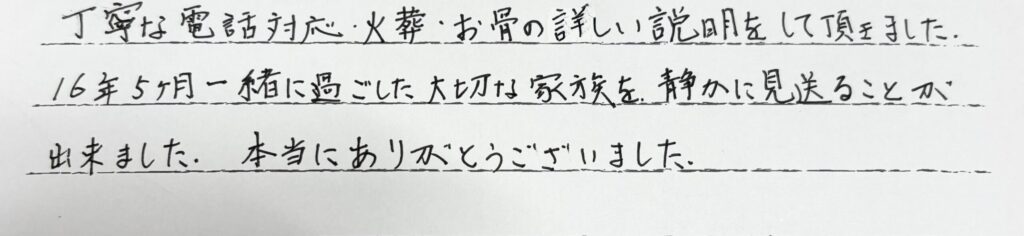 丁寧な電話対応・火葬・お骨の詳しい説明をして頂きました.
16年5ヶ月一緒に過ごした大切な家族を.静かに見送ることが
出来ました. 本当にありがとうございました.